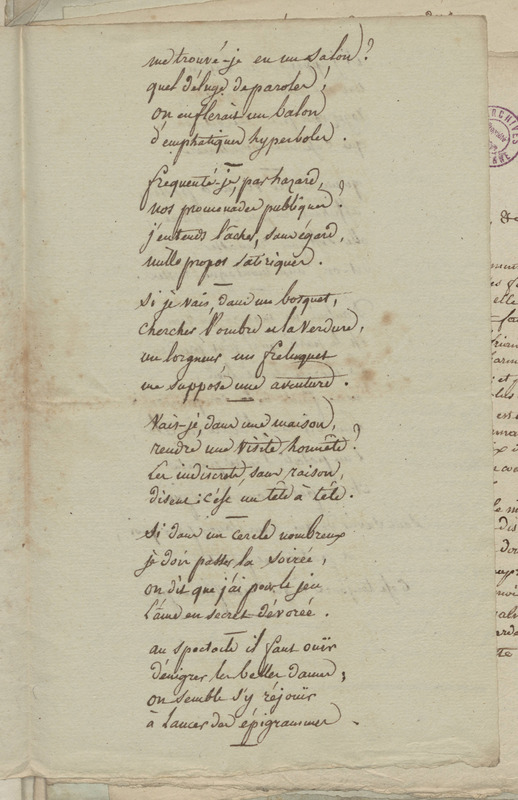 me trouvé-je en un salon ?
quel déluge de paroles !
on enflerait un balon
d'emphatiques hyperboles .
frequenté-je, par hazard,
nos promenades publiques ?
j'entends lâcher, sans égard,
mille propos satiriques .
si je vais dans un bosquet,
chercher l'ombre et la verdure,
un lorgneur un freluquet
me suppose une aventure .
Vais-je, dans une maison,
rendre une visite honnête ?
les indiscrets, sans raison,
disent : c'est un tête à tête .
si dans un cercle nombreux
je dois passer la soirée,
on dit que j'ai pour le jeu
l'âme en secret dévorée .
au spectacle il faut ouïr
dénigrer les belles dames ;
on semble s'y réjouir
à lancer des épigrammes .
ARCHIVES